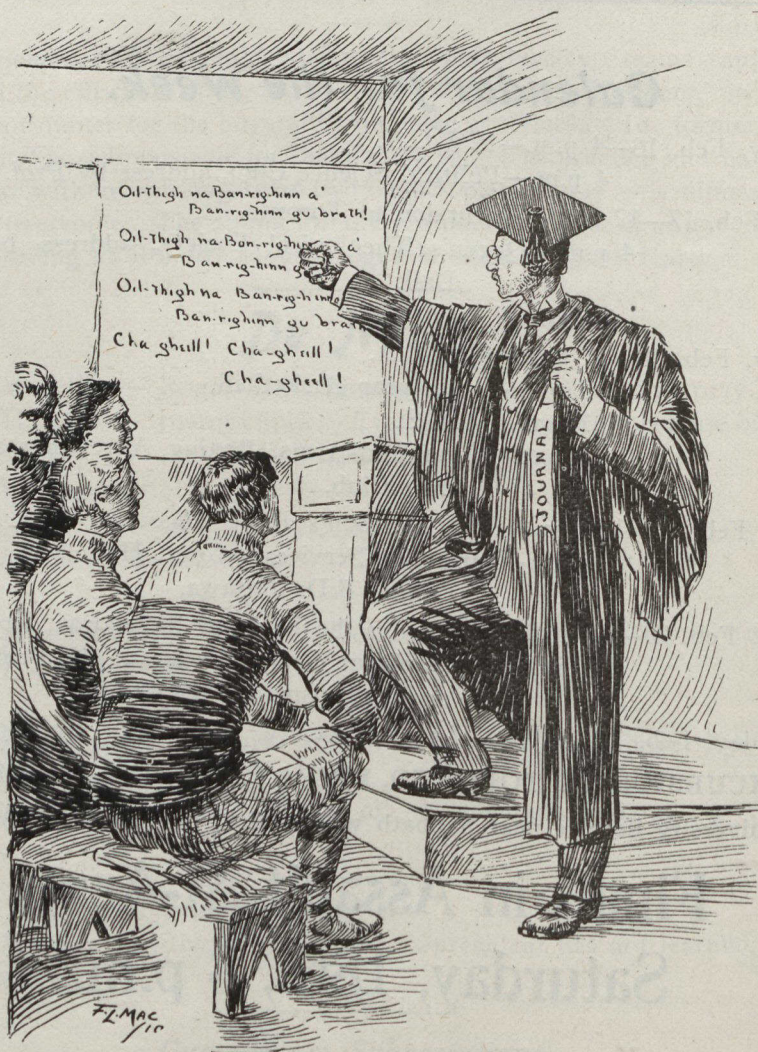 Oil-Thigh na Ban-rig-hinn a'
Ban-rig-hinn gu brath!
Oil-Thigh na-Ban-rig-hinn a'
Ban-rig-hinn g
Oil-Thigh na Ban-rig-hinn
Ban-righinn gu brath
Cha gheill! Cha-gheill!
Cha-gheell!
JOURNAL
F.L.MAC
/10